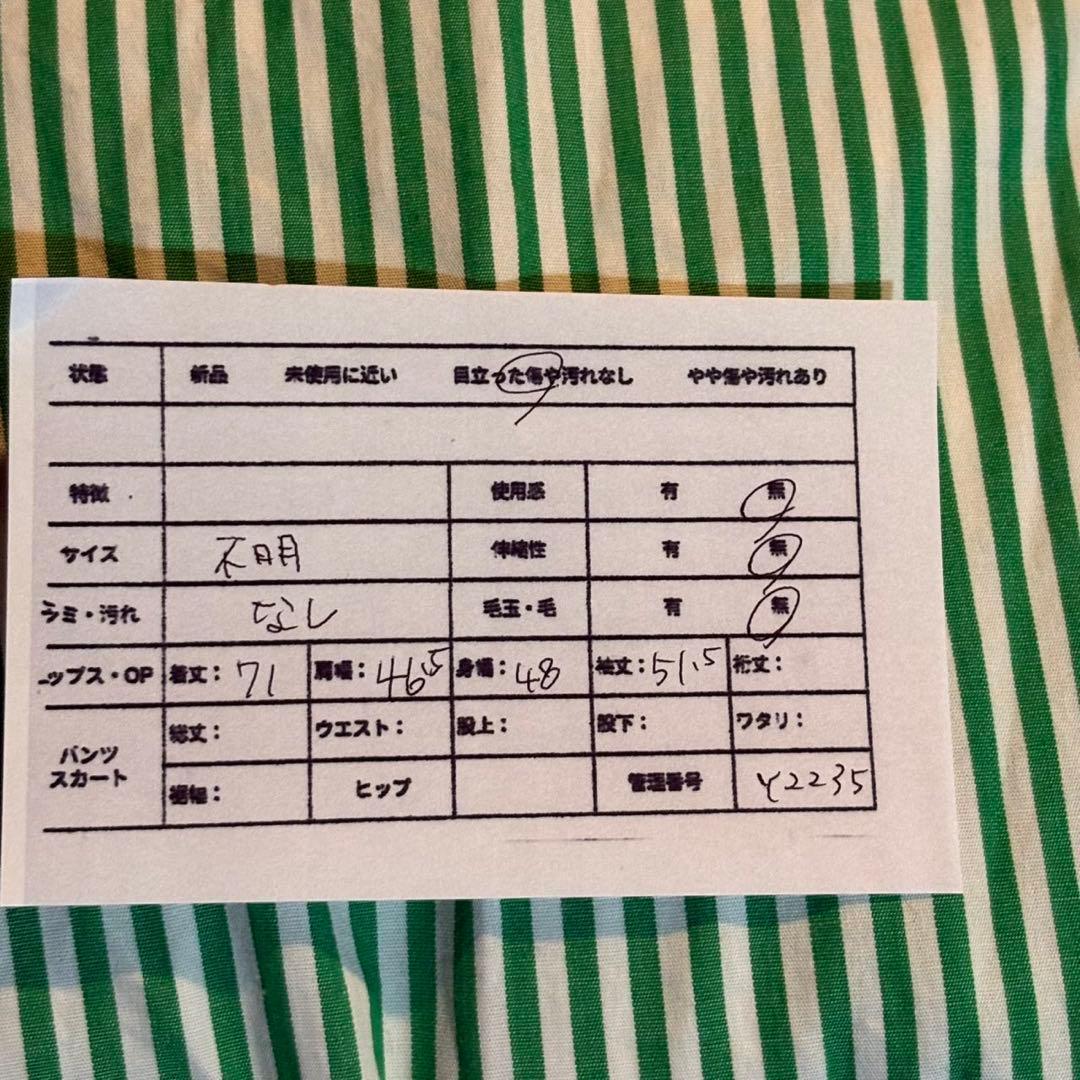 状態 新品 未使用に近い 目立った傷や汚れなし やや傷や汚れあり
特徴 使用感 有 無
サイズ 不明 伸縮性 有 無
ラミ・汚れ なし 毛玉・毛 有 無
ップス・OP 着丈： 71 肩幅： 46.5 身幅： 48 袖丈： 51.5 裄丈：
パンツ
スカート
総丈： ウエスト： 股上： 股下： ワタリ：
裾幅： ヒップ 管理番号 Y2235